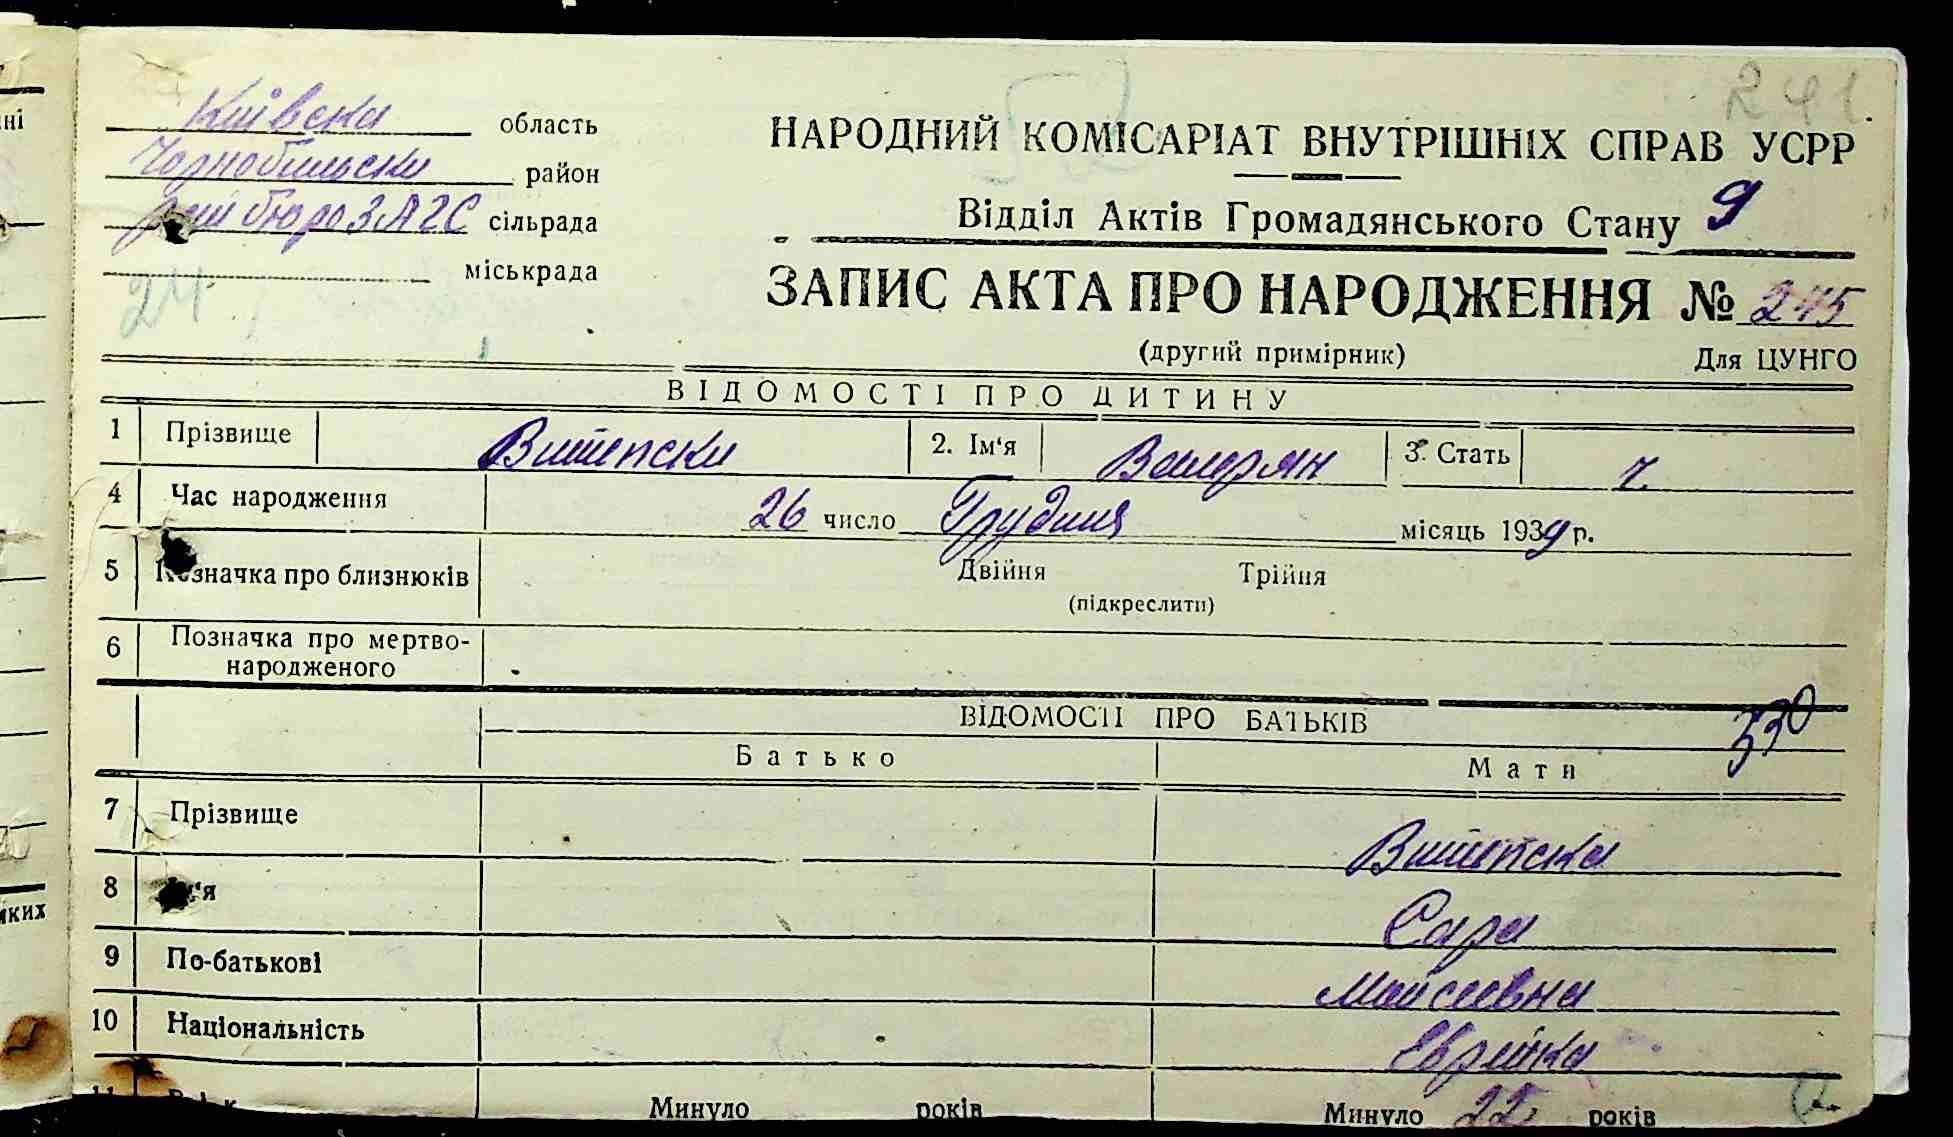 241
Київска область
Чорнобильски район
рай бюро ЗАГС сільрада
міськрада
24
НАРОДНИЙ КОМІСАРІАТ ВНУТРІШНІХ СПРАВ УСРР
Відділ Актів Громадянського Стану 9
ЗАПИС АКТА ПРО НАРОДЖЕННЯ № 245
(другий примірник) Для ЦУНГО
ВІДОМОСТІ ПРО ДИТИНУ
1 Прізвище 2. Ім'я Валерян 3. Стать ч.
4 Час народження 26 число Грудня місяць 1939 р.
5 Позначка про близнюків Двійня Трійня
(підкреслити)
6 Позначка про мертво-
народженого
ВІДОМОСТІ ПРО БАТЬКІВ 530
Батько Мати
7 Прізвище
8 Ім'я Сара
9 По-батькові Мойсеевна
10 Національність Еврейка
11 Вік Минуло років Минуло років